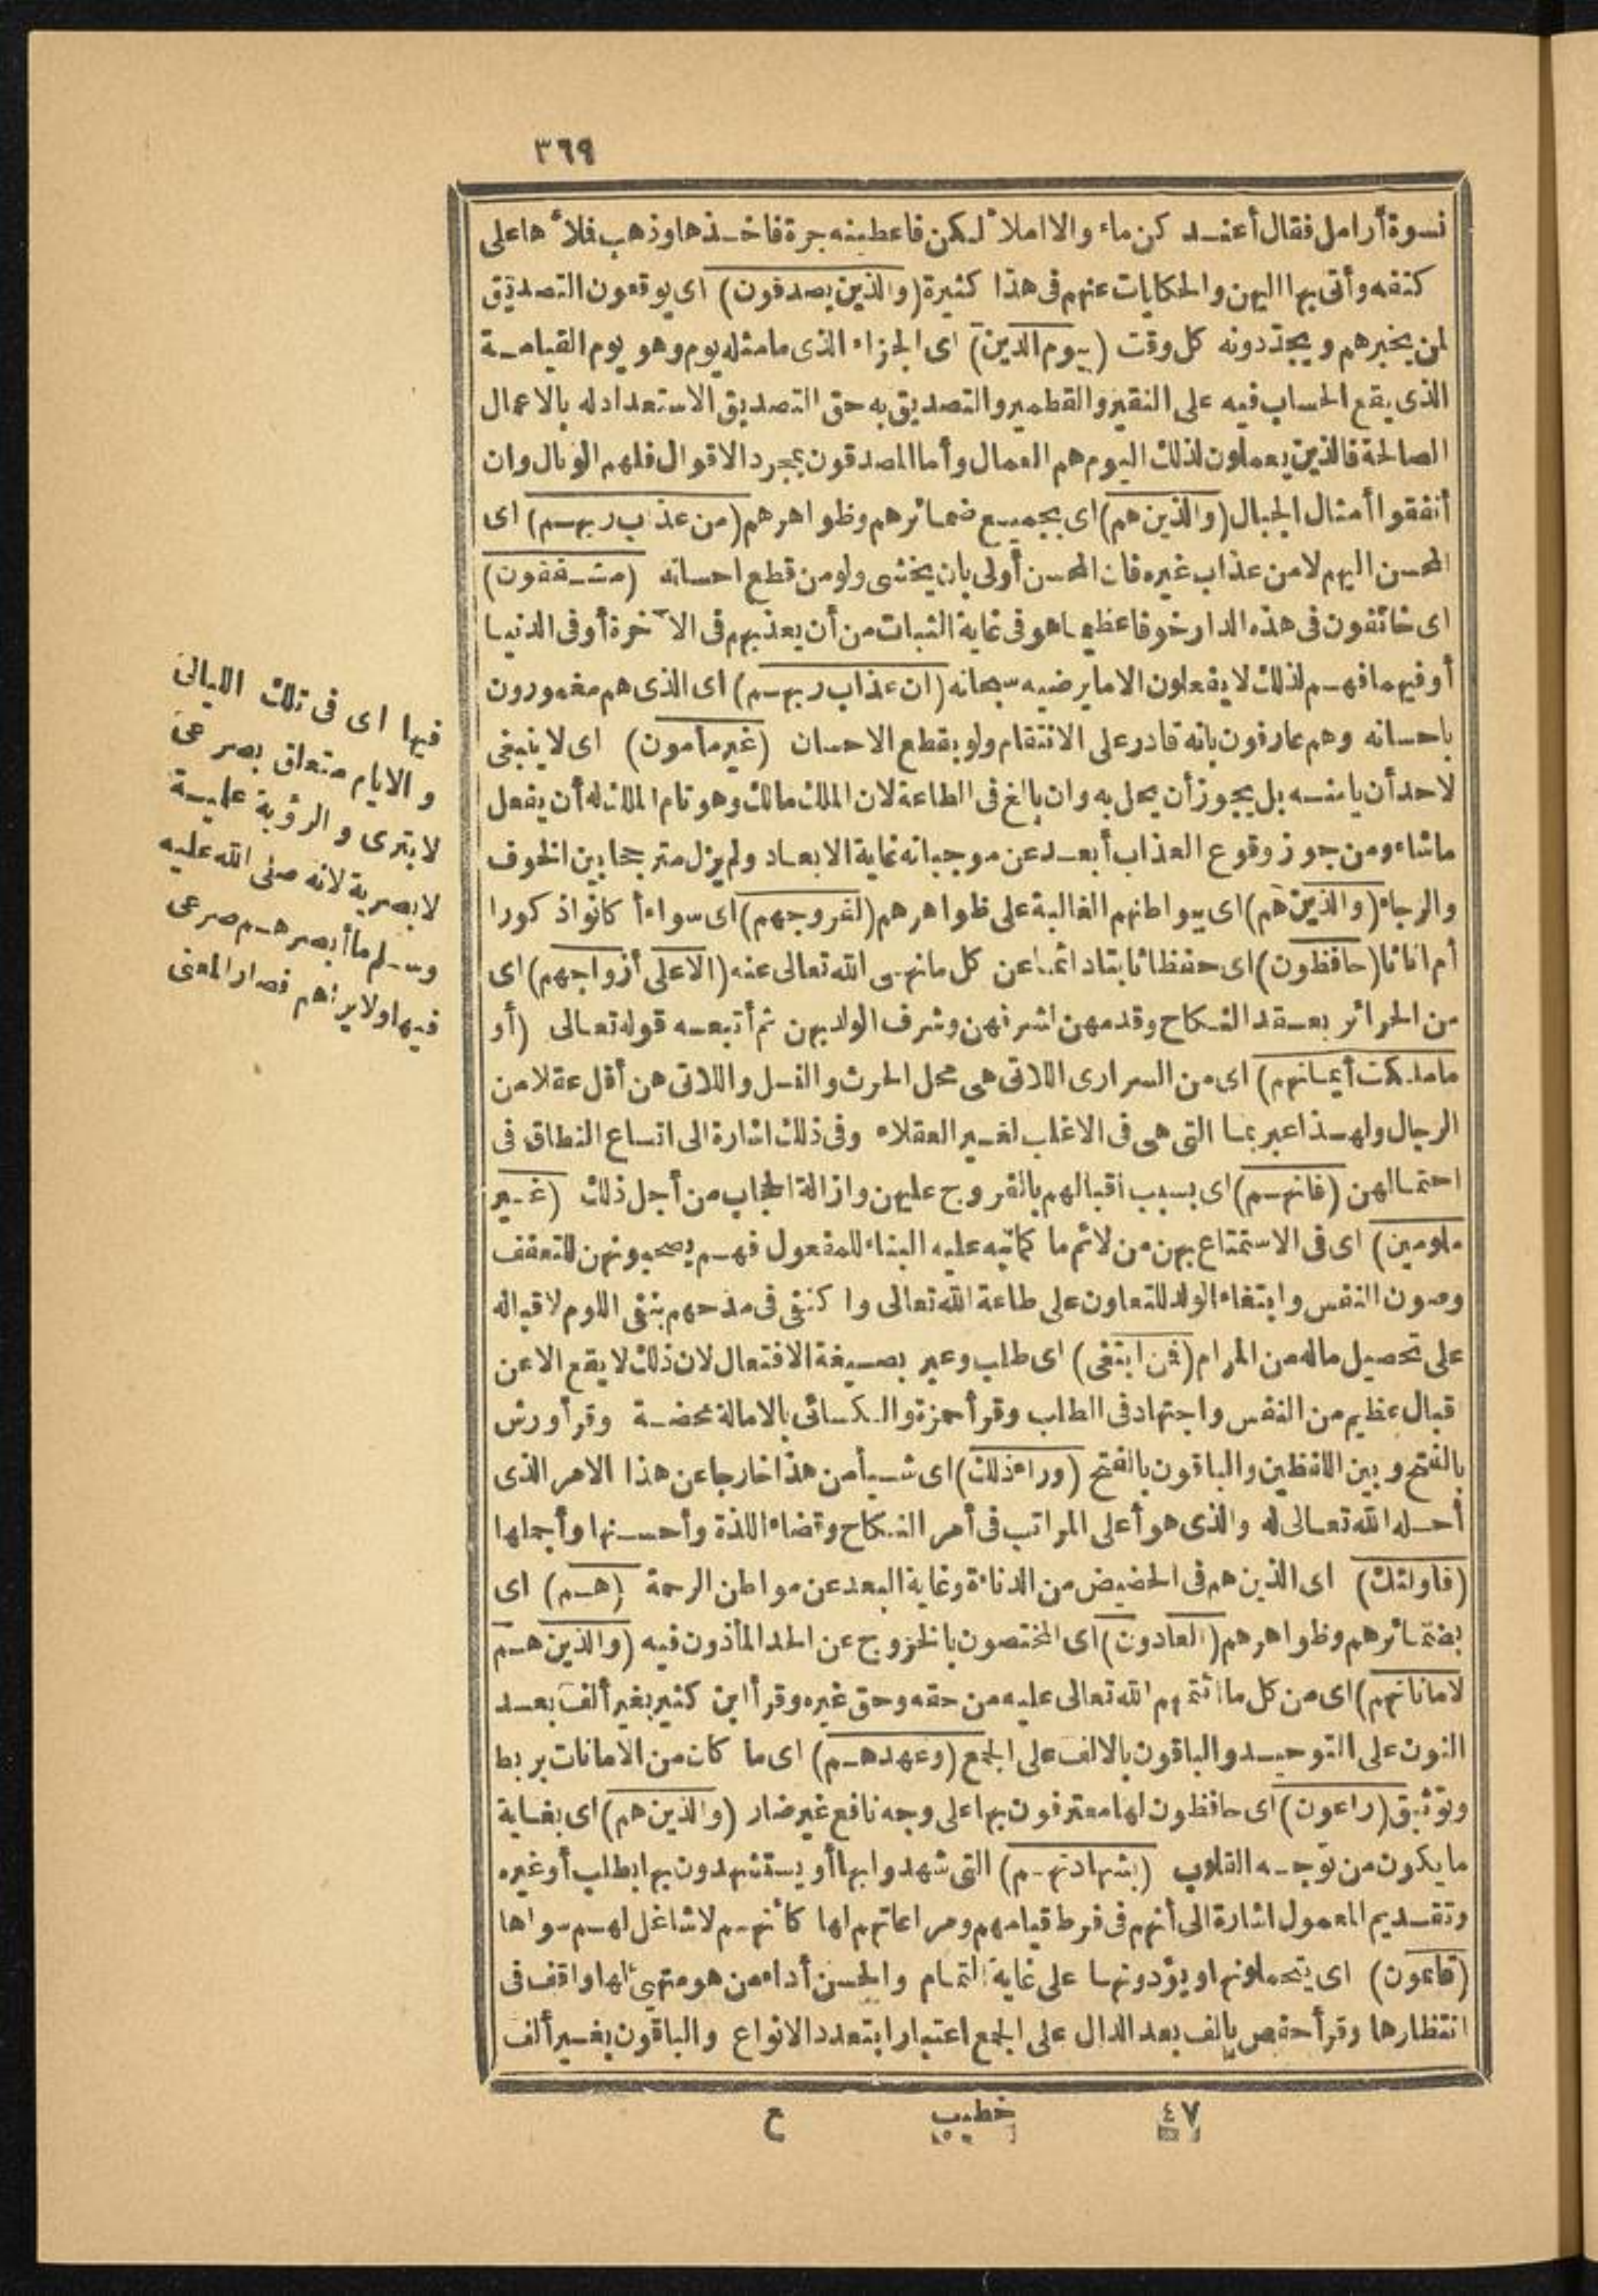 ٣٦٩
نسوة أرامل فقال أعندكن ماء والا املا ٔ لكن فاعطينه جرة فاخذها وذهب فلا ٔ ها على
كتفه وأتى بها اليهن والحكايات عنهم فى هذا كثيرة (والذين يصدقون) اى يوقعون التصديق
لمن يخبرهم ويجددونه كل وقت (بيوم الدين) اى الجزاء الذى ما مثله يوم وهو يوم القيامة
الذى يقع الحساب فيه على النقير والقطمير والتصديق به حق التصديق الاستعداد له بالاعمال
الصالحة فالذين يعملون لذلك اليوم هم العمال وأما المصدقون بمجرد الاقوال فلهم الوبال وان
أنفقوا أمثال الجبال (والذين هم) اى بجميع ضمائرهم وظواهرهم (من عذاب ربهم) اى
المحسن اليهم لا من عذاب غيره فان المحسن أولى بان يخشى ولو من قطع احسانه (مشفقون)
اى خائفون فى هذه الدار خوفا عظيما هو فى غاية الثبات من أن يعذبهم فى الا ٓ خرة أو فى الدنيا
أو فيهما فهم لذلك لا يفعلون الا ما يرضيه سبحانه (ان عذاب ربهم) اى الذى هم مغمورون
باحسانه وهم عارفون بانه قادر على الانتقام ولو بقطع الاحسان (غير مأمون) اى لا ينبغى
لاحد أن يأمنه بل يجوز أن يحل به وان بالغ فى الطاعة لان الملك مالك وهو تام الملك له أن يفعل
ما شاء ومن جوز وقوع العذاب أبعد عن موجباته غاية الابعاد ولم يزل مترجحا بين الخوف
والرجاء (والذين هم) اى ببواطنهم الغالبة على ظواهرهم (لفروجهم) اى سواء أ كانوا ذكورا
أم اناثا (حافظون) اى حفظا ثابتا دائما عن كل ما نهى الله تعالى عنه (الا على أزواجهم) اى
من الحرائر بعقد النكاح وقدمهن لشرفهن وشرف الولد بهن ثم أتبعه قوله تعالى (أو
ما ملكت أيمانهم) اى من السرارى اللاتى هى محل الحرث والنسل واللاتى هن أقل عقلا من
الرجال ولهذا عبر بما التى هى فى الاغلب لغير العقلاء وفى ذلك اشارة الى اتساع النطاق فى
احتمالهن (فانهم) اى بسبب اقبالهم بالفروج عليهن وازالة الحجاب من أجل ذلك (غير
ملومين) اى فى الاستمتاع بهن من لائم ما كما نبه عليه البناء للمفعول فهم يصحبونهن للتعفف
وصون النفس وابتغاء الولد للتعاون على طاعة الله تعالى واكتفى فى مدحهم بنفى اللوم لاقباله
على تحصيل ما له من المرام (فمن ابتغى) اى طلب وعبر بصيغة الافتعال لان ذلك لا يقع الا عن
قبال عظيم من النفس واجتهاد فى الطلب وقرأ حمزة والكسائى بالامالة محضة وقرأ ورش
بالفتح وبين اللفظين والباقون بالفتح (وراء ذلك) اى شيأ من هذا خارجا عن هذا الامر الذى
أحله الله تعالى له والذى هو أعلى المراتب فى أمر النكاح وقضاء اللذة وأحسنها وأجملها
(فاولئك) اى الذين هم فى الحضيض من الدناءة وغاية البعد عن مواطن الرحمة (هم) اى
بضمائرهم وظواهرهم (العادون) اى المختصون بالخروج عن الحد المأذون فيه (والذين هم
لاماناتهم) اى من كل ما ائتمنهم الله تعالى عليه من حقه وحق غيره وقرأ ابن كثير بغير ألف بعد
النون على التوحيد والباقون بالالف على الجمع (وعهدهم) اى ما كان من الامانات بربط
وتوثيق (راعون) اى حافظون لها معترفون بها على وجه نافع غير ضار (والذين هم) اى بغاية
ما يكون من توجه القلوب (بشهادتهم) التى شهدوا بها أو يستشهدون بها بطلب أو غيره
وتقديم المعمول اشارة الى أنهم فى فرط قيامهم ومراعاتهم لها كأنهم لا شاغل لهم سواها
(قائمون) اى يتحملونها ويؤدونها على غاية التمام والحسن أداء من هو متهيئ لها واقف فى
انتظارها وقرأ حفص بالف بعد الدال على الجمع اعتبارا بتعدد الانواع والباقون بغير ألف
فيها اى فى تلك الليالى
و الايام متعلق بصرعى
لا بترى و الرؤية علمية
لا بصرية لانه صلى الله عليه
وسلم ما أبصرهم صرعى
فيها ولا يراهم فصار المعنى
٤٧ خطيب ع